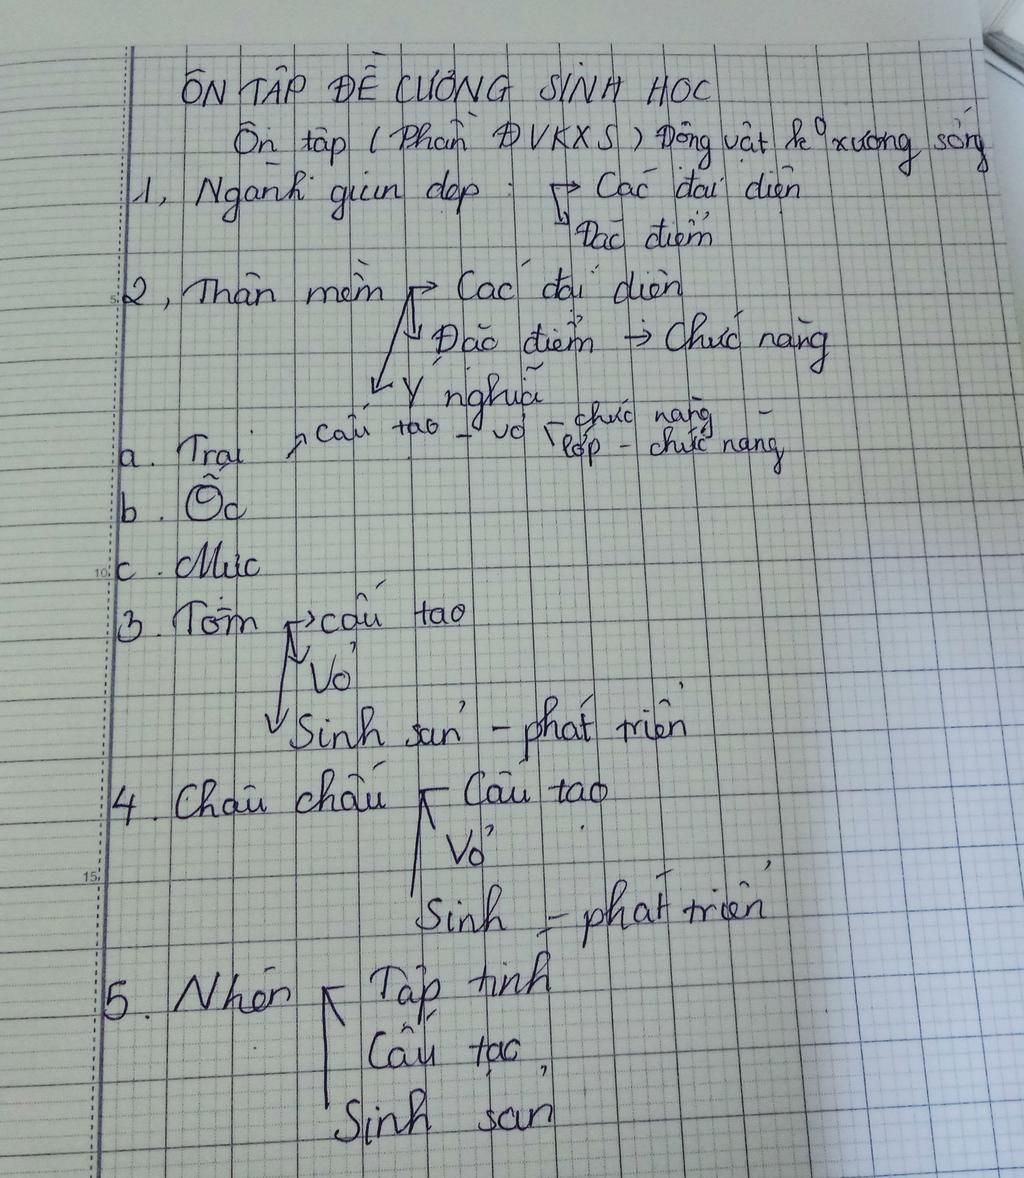 ÔN TẬP ĐỀ CƯƠNG SINH HỌC
Ôn tập ( Phần ĐVKXS ) Động vật k⁰ xương sống
1, Ngành giun dẹp : → Các đại diện
↳ Đặc điểm
2, Thân mềm → Các đại diện
↳ Đặc điểm → Chức năng
↙ Ý nghĩa
a. Trai → cấu tạo - vỏ - chức năng -
lớp - chức năng
b. Ốc
c. Mực
3. Tôm → cấu tạo
Vỏ
Sinh sản - phát triển
4. Châu chấu Cấu tạo
Vỏ
Sinh - phát triển
5. Nhện Tập tính
Cấu tạo
Sinh sản
5
10
15